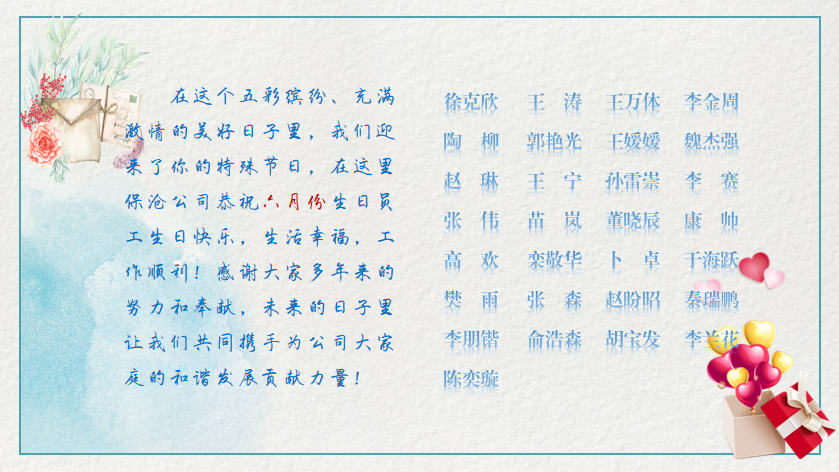 在这个五彩缤纷、充满
激情的美好日子里，我们迎
来了你的特殊节日，在这里
保沧公司恭祝六月份生日员
工生日快乐，生活幸福，工
作顺利！感谢大家多年来的
努力和奉献，未来的日子里
让我们共同携手为公司大家
庭的和谐发展贡献力量！
徐克欣 王 涛 王万体 李金周
陶 柳 郭艳光 王媛媛 魏杰强
赵 琳 王 宁 孙雷崇 李 赛
张 伟 苗 岚 董晓辰 康 帅
高 欢 栾敬华 卜 卓 于海跃
樊 雨 张 森 赵盼昭 秦瑞鹏
李朋锴 俞浩森 胡宝发 李兰花
陈奕璇